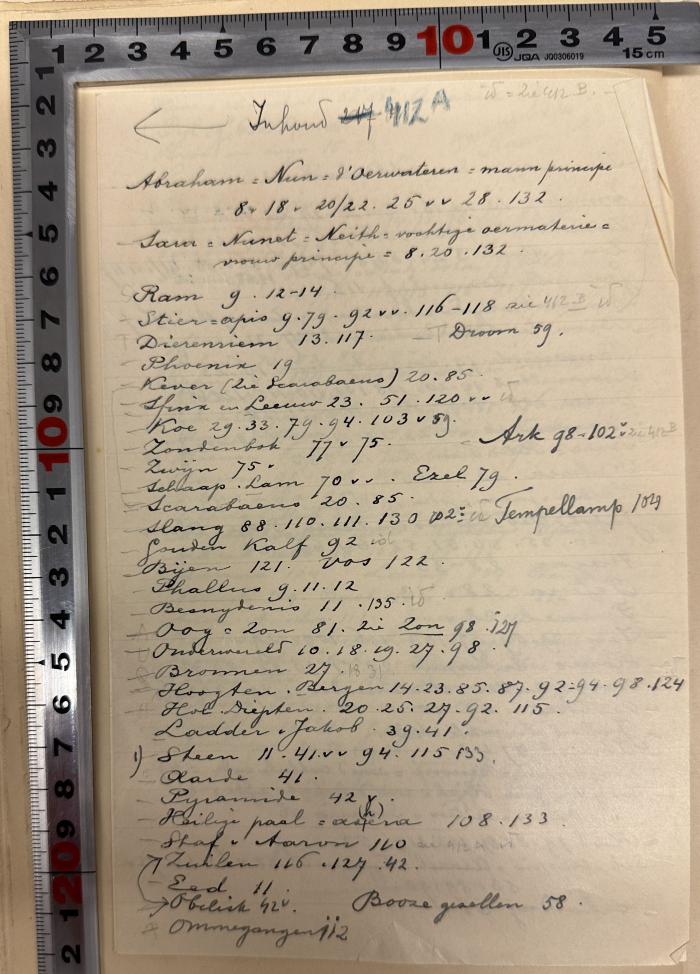 Inhoud 217 412 A
id = zie 412 B.
Abraham = Nun = d'Oerwateren = mann principe
8 v 18 v 20/22. 25 vv 28. 132.
Sara = Nunet = Neith = vochtige oermaterie =
vrouw principe = 8. 20. 132.
Ram 9. 12-14
Stier = apis 9. 79. 92 vv. 116-118 zie 412 B id
Dierenriem 13. 117. Droom 59.
Phoenix 19
Kever (zie Scarabaeus) 20. 85.
Sfinx en Leeuw 23. 51. 120 vv id
Koe 29. 33. 79. 94. 103 v 59.
Zondenbok 77 v 75. Ark 98-102 v zie 412 B
Zwijn 75 v
Schaap. Lam 70 vv. Ezel 79.
Scarabaeus 20. 85.
Slang 88. 110. 111. 130 id Tempellamp 104
Gouden Kalf 92 id
Bijen 121. Vos 122.
Phallus 9. 11. 12
Besnydenis 11. 135. id
Oog = Zon 81. zie Zon 98. 127
Onderwereld 10. 18. 19. 27. 98.
Bronnen 27. 18 31
Hoogten. Bergen 14. 23. 85. 87. 92-94. 98. 124
Hol. Diepten. 20. 25. 27. 92. 115.
Ladder v Jakob. 39. 41.
1) Steen 11. 41. vv 94. 115 133.
Aarde 41.
Pyramide 42 v.
Heilige paal = as(h)era 108. 133.
Staf v Aaron 110
Zuilen 116. 127. 42.
Eed 11.
Obelisk 42 v. Booze gezellen 58.
Ommegangen 112
1 2 3 4 5 6 7 8 9 10 1 2 3 4 5
JIS JQA JQ0306019 15cm
1 2 3 4 5 6 7 8 9 10 1 2 3 4 5 6 7 8 9 20 1 2